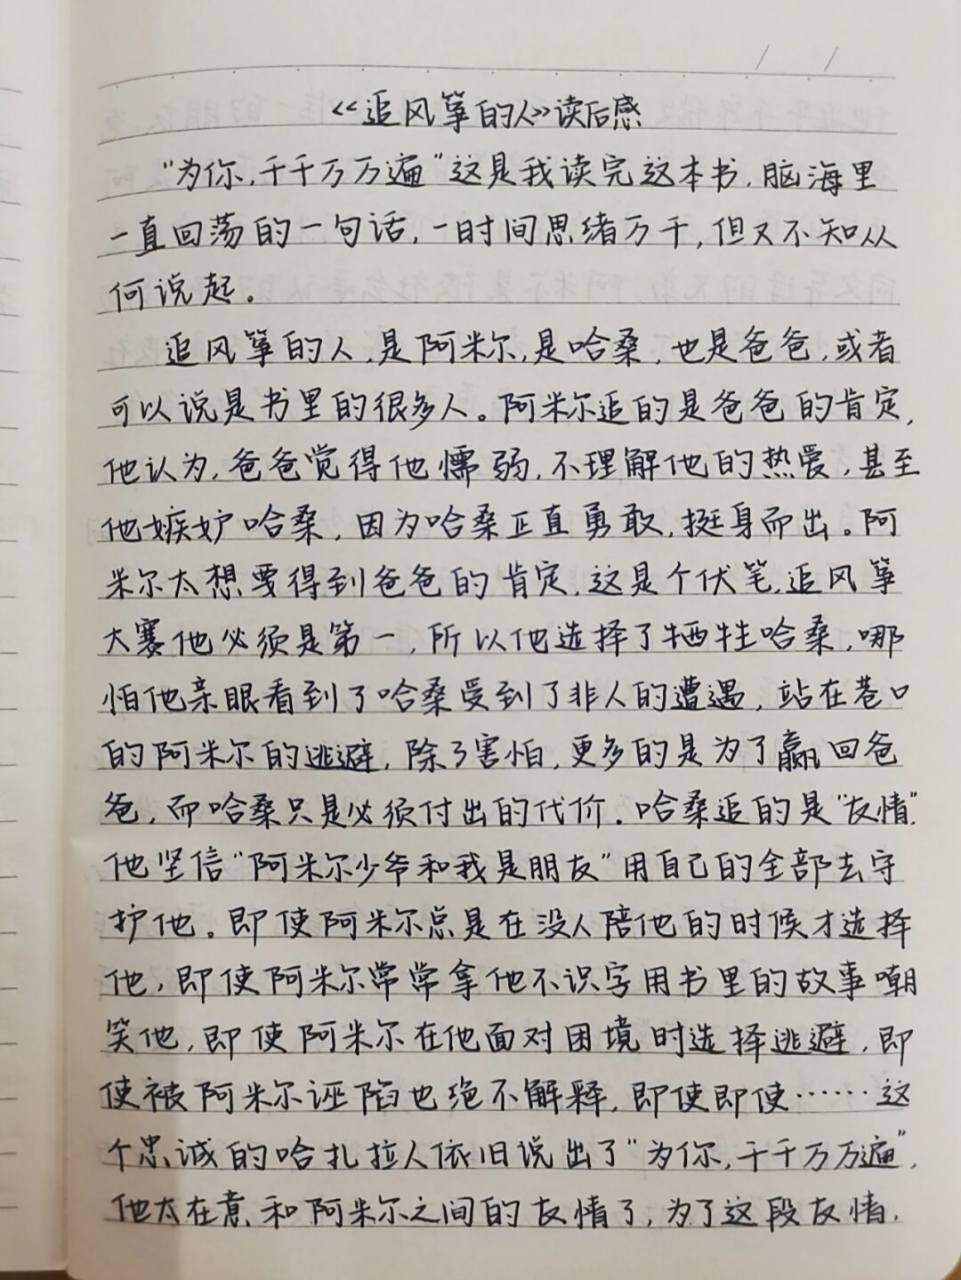 《追风筝的人》读后感
“为你,千千万万遍”这是我读完这本书,脑海里
一直回荡的一句话,一时间思绪万千,但又不知从
何说起。
追风筝的人,是阿米尔,是哈桑,也是爸爸,或者
可以说是书里的很多人。阿米尔追的是爸爸的肯定,
他认为,爸爸觉得他懦弱,不理解他的热爱,甚至
他嫉妒哈桑,因为哈桑正直勇敢,挺身而出。阿
米尔太想要得到爸爸的肯定,这是个伏笔,追风筝
大赛他必须是第一,所以他选择了牺牲哈桑,哪
怕他亲眼看到了哈桑受到了非人的遭遇,站在巷口
的阿米尔的逃避,除了害怕,更多的是为了赢回爸
爸,而哈桑只是必须付出的代价.哈桑追的是“友情”,
他坚信“阿米尔少爷和我是朋友”用自己的全部去守
护他。即使阿米尔总是在没人陪他的时候才选择
他,即使阿米尔常常拿他不识字用书里的故事嘲
笑他,即使阿米尔在他面对困境时选择逃避,即
使被阿米尔诬陷也绝不解释,即使即使……这
个忠诚的哈扎拉人依旧说出了“为你,千千万万遍”,
他太在意和阿米尔之间的友情了,为了这段友情,